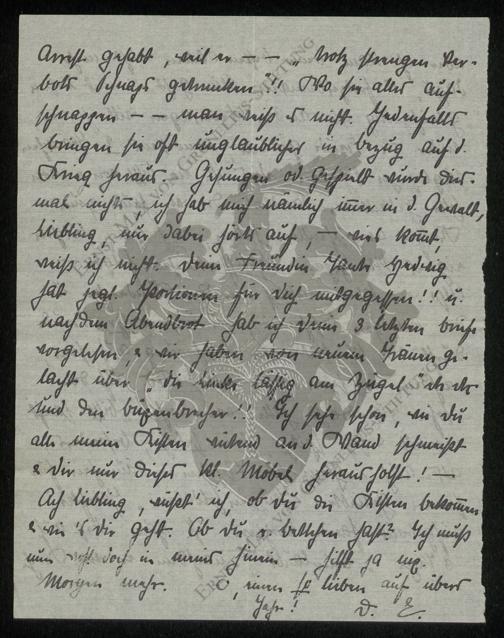 Arrest gehabt, weil er — — „trotz strengen Ver-
bots Schnaps getrunken"!! Wo sie alles auf-
schnappen — — man weiß es nicht. Jedenfalls
bringen sie oft unglaubliches in bezug auf d.
Krieg heraus. Gesungen od. gespielt wurde dies-
mal nichts, ich hab mich nämlich immer in d. Gewalt,
Liebling, nur dabei hörts auf, — wies kommt,
weiß ich nicht. Deine Freundin Tante Hedwig
hat sechs Portionen für Dich mitgegessen!! u.
nach dem Abendbrot hab ich Deine 3 letzten Briefe
vorgelesen, & wir haben von neuem Tränen ge-
lacht über „die Linke lässig am Zügel"
und den
!! Ich sehe schon, wie Du
alle meine Kisten wütend an d. Wand schmeißt
& Dir nur dieses kl. Möbel herausholst! —
Ach Liebling, wüßt' ich, ob Du die Kisten bekommen
& wie's Dir geht. Ob Du zu bestehen hast? Ich muß
nun doch in meins hinein — hilft ja nix.
Morgen mehr. einen lieben auf übers
Jahr! D. E.
EPPO
STIFTUNG